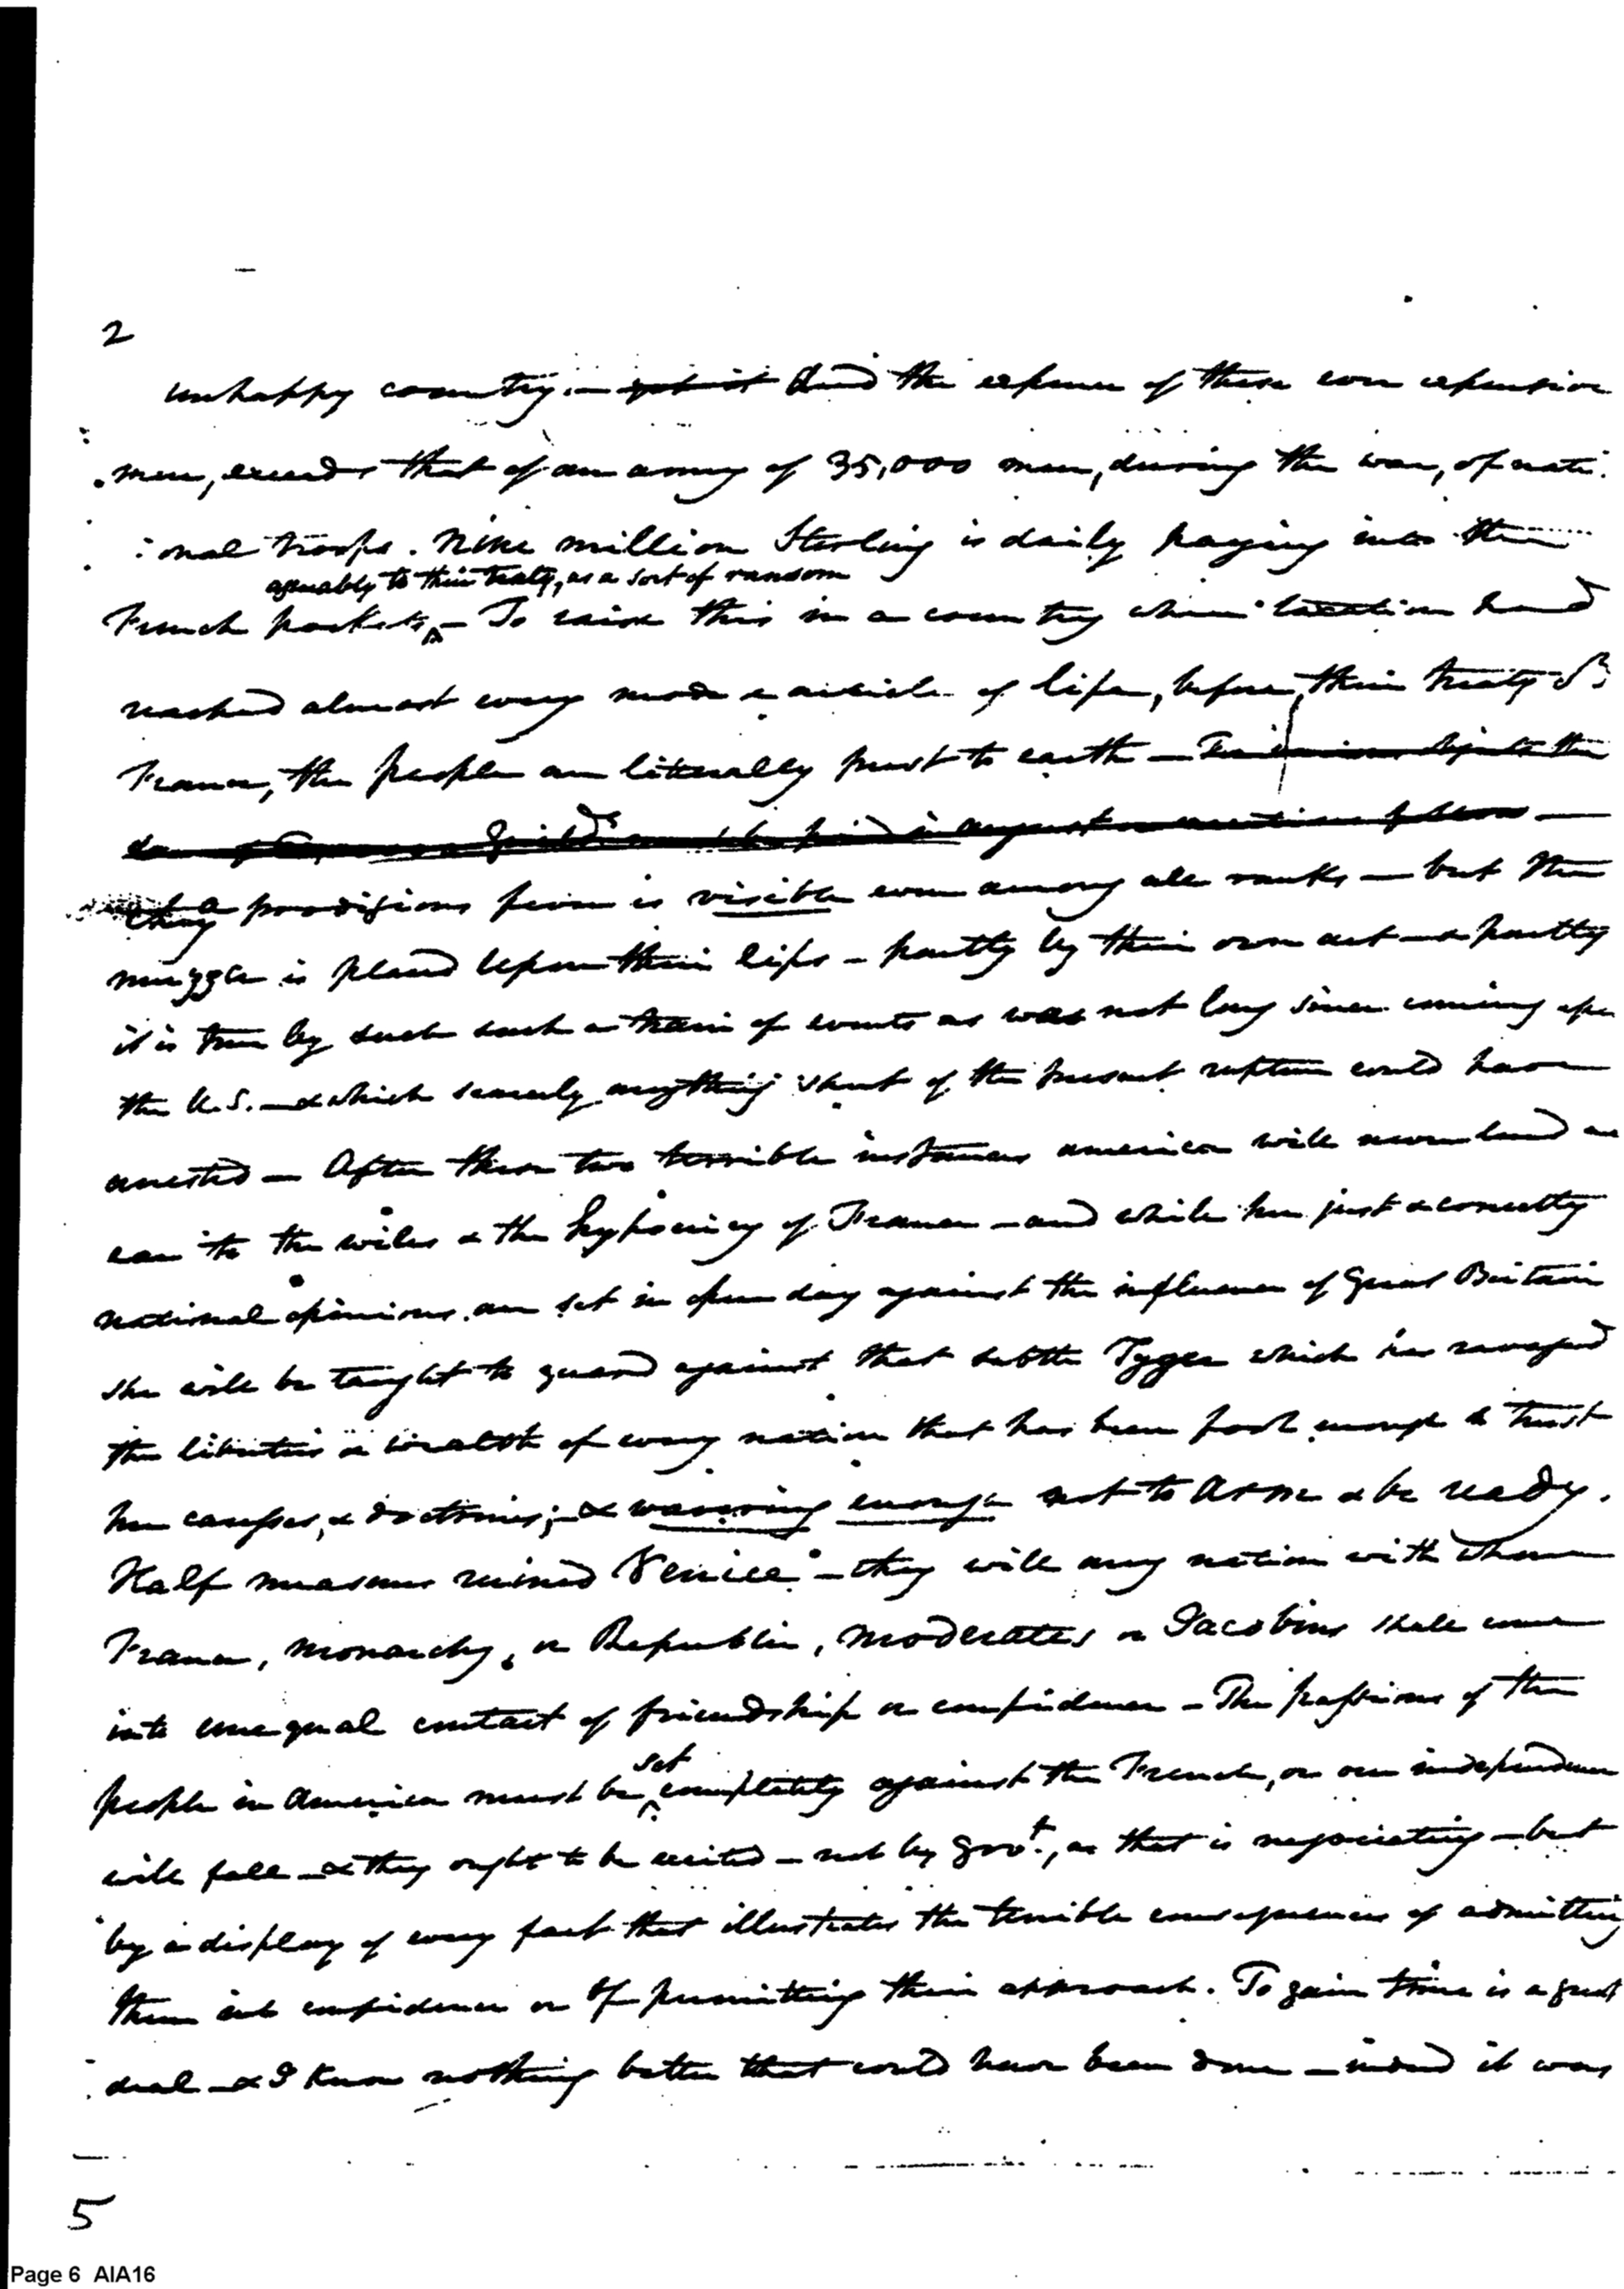 2
unhappy country. – And the expense of these ever expensive
men, exceeds that of an army of 35,000 men, during the war, of nati:
:onal troops. Nine million Sterling is daily paying into the
agreeably to their treaty, as a sort of ransom
French pockets, – To raise this in a country where taxation had
reached almost every mode & article of life, before their treaty
France, the people are literally prest to earth –
a prodigious is visible even among all ranks – but the
muzzle is placed upon their lips – partly by their own act – & partly
it is true by such such a train of events as was not long since coming upon
the U.S. – & which scarcely anything short of the present rupture could have
arrested – After these two terrible instances america will never lend an
ear to the wiles & the hypocricy of France – and while her just & correctly
national opinions are set in open day against the influence of Great Britain
she will be taught to guard against that subtle Tyger which has ravaged
the liberties & wealth of every nation that has been fool enough to trust
her caresses, & doctrines; – & wavering enough not to arm & be ready.
Half measures ruined Venice – they will any nation with whom
France, monarchy, or Republic, moderates or Jacobins shall come
into unequal contact of friendship or confidence – The passions of the
set
people in America must be completely against the French, or our independence
will fall – & they ought to be excited – not by govt., as that is negociating – but
by a display of every fact that illustrates the terrible consequences of admitting
them into confidence or of permitting their approach. To gain time is a great
deal – & I know nothing better that could have been done – indeed it was
5
Page 6 AIA16